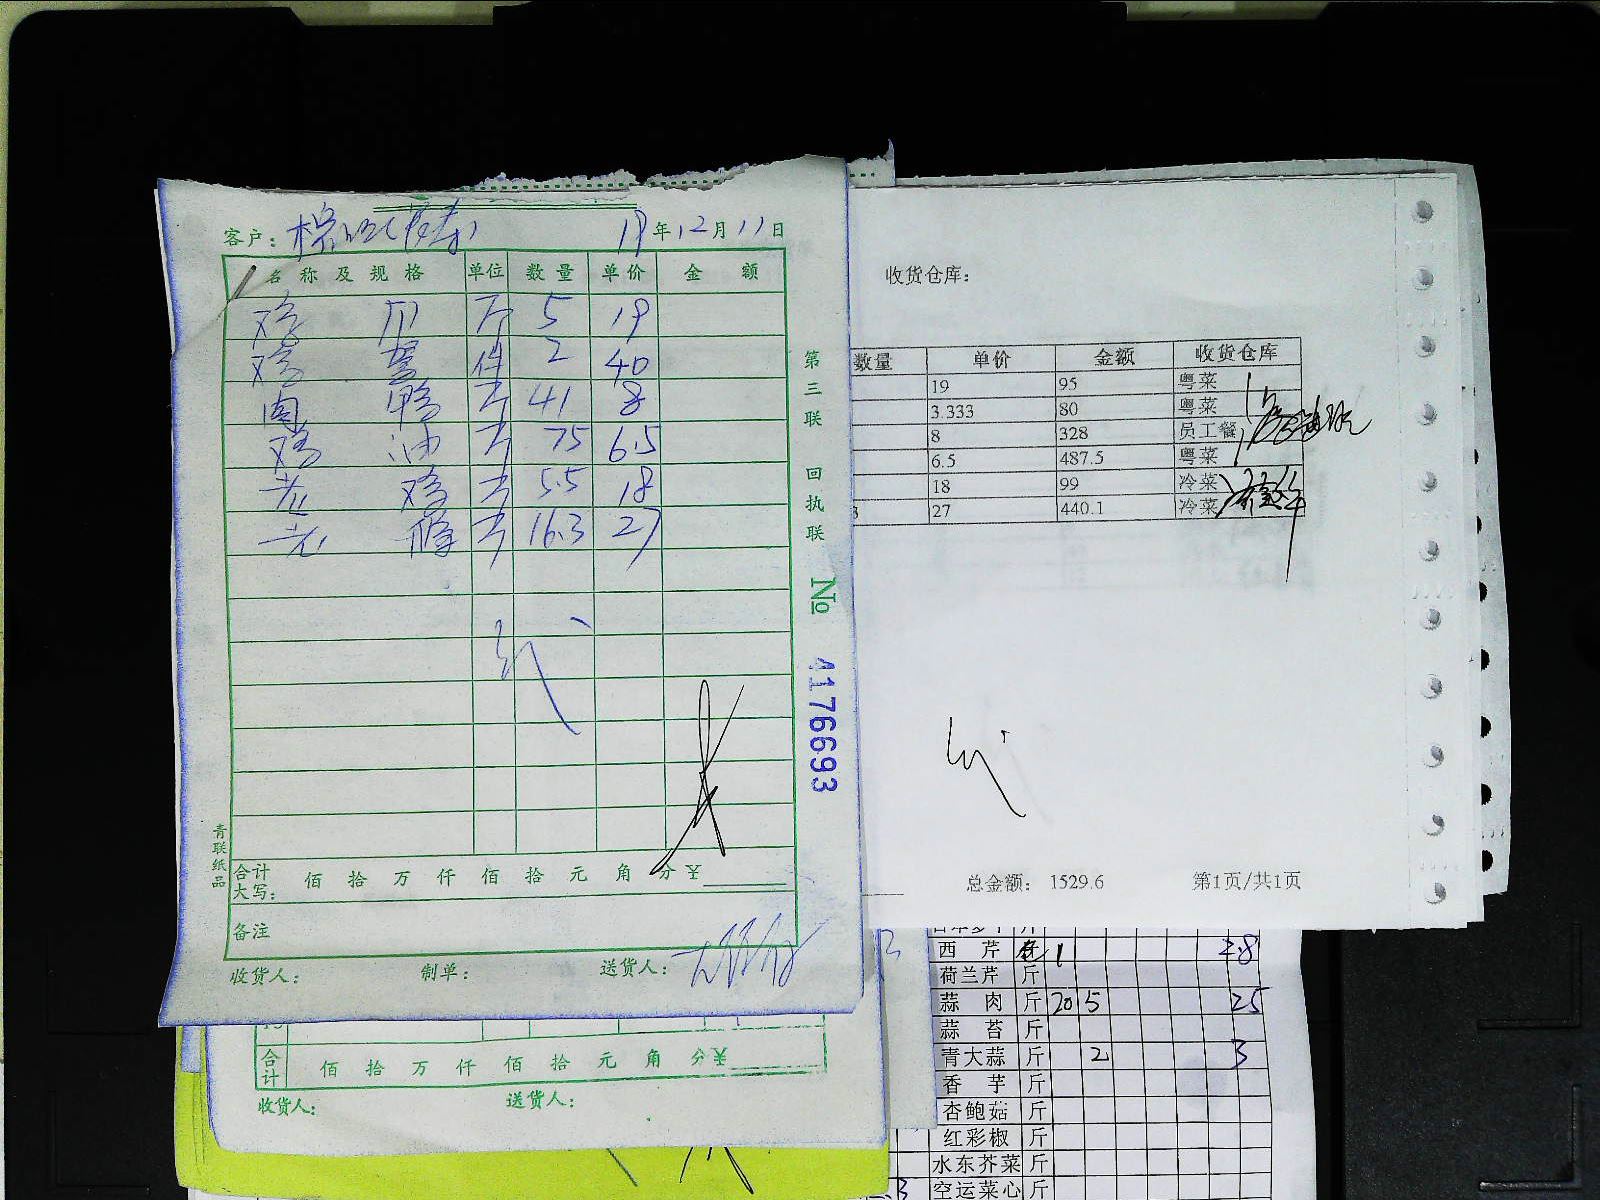 客户： 19年12月11日
名称及规格 单位 数量 单价 金额
鸡 斤 5 19
鸡 件 2 40
肉鸭 斤 41 8
鸡油 斤 75 6.5
老鸡 斤 5.5 18
老 斤 16.3 27
合计大写： 佰 拾 万 仟 佰 拾 元 角 分 ¥
备注
收货人： 制单： 送货人：
第三联 回执联 No 4176693
青联纸品
收货仓库：
数量 单价 金额 收货仓库
19 95 粤菜
3.333 80 粤菜
8 328 员工餐
6.5 487.5 粤菜
18 99 冷菜
3 27 440.1 冷菜
总金额： 1529.6 第1页/共1页
合计 佰 拾 万 仟 佰 拾 元 角 分 ¥
收货人： 送货人：
西芹 1 28
荷兰芹 斤
蒜肉 斤 20 5 25
蒜苔 斤
青大蒜 斤 2 3
香芋 斤
杏鲍菇 斤
红彩椒 斤
水东芥菜 斤
空运菜心 斤